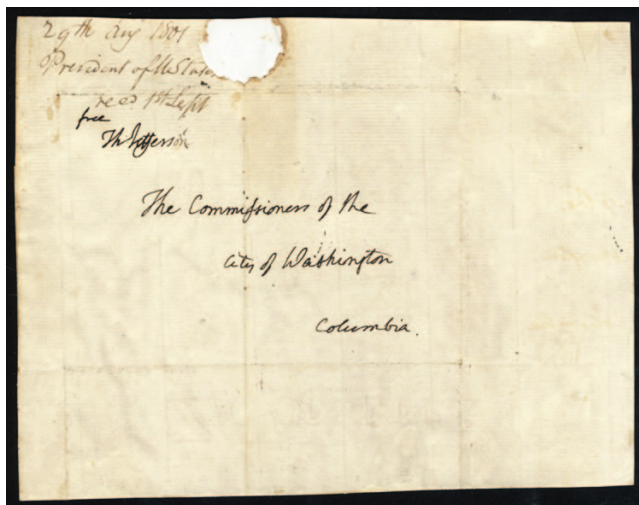 29th Aug 1801
President of U States
recd 1st Sept
free
Th Jefferson
The Commissioners of the
City of Washington
Columbia.